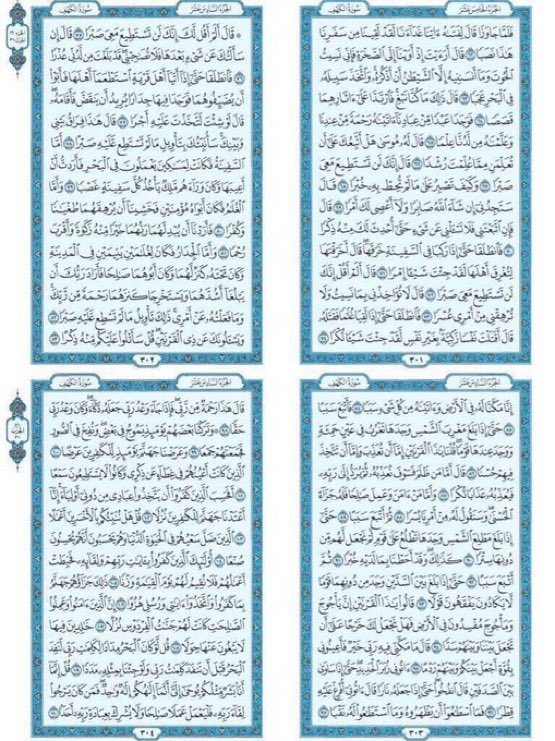 سورة الكهف الجزء الخامس عشر
فلما جاوزا قال لفتىه ءاتنا غداءنا لقد لقينا من سفرنا
هذا نصبا ٦٢ قال أرءيت إذ أوينا إلى الصخرة فإني نسيت
الحوت وما أنسىنيه إلا الشيطن أن أذكره واتخذ سبيله
في البحر عجبا ٦٣ قال ذلك ما كنا نبغ فارتدا على ءاثارهما
قصصا ٦٤ فوجدا عبدا من عبادنا ءاتينه رحمة من عندنا
وعلمنه من لدنا علما ٦٥ قال له موسى هل أتبعك على أن
تعلمن مما علمت رشدا ٦٦ قال إنك لن تستطيع معي
صبرا ٦٧ وكيف تصبر على ما لم تحط به خبرا ٦٨ قال
ستجدني إن شاء الله صابرا ولا أعصي لك أمرا ٦٩ قال
فإن اتبعتني فلا تسءلني عن شيء حتى أحدث لك منه ذكرا
٧٠ فانطلقا حتى إذا ركبا في السفينة خرقها قال أخرقتها
لتغرق أهلها لقد جئت شيءا إمرا ٧١ قال ألم أقل إنك
لن تستطيع معي صبرا ٧٢ قال لا تؤاخذني بما نسيت ولا
ترهقني من أمري عسرا ٧٣ فانطلقا حتى إذا لقيا غلما فقتله
قال أقتلت نفسا زكية بغير نفس لقد جئت شيءا نكرا ٧٤
٣٠١
سورة الكهف
۞ قال ألم أقل لك إنك لن تستطيع معي صبرا ٧٥ قال إن
سألتك عن شيء بعدها فلا تصحبني قد بلغت من لدني عذرا
٧٦ فانطلقا حتى إذا أتيا أهل قرية استطعما أهلها فأبوا
أن يضيفوهما فوجدا فيها جدارا يريد أن ينقض فأقامه
قال لو شئت لتخذت عليه أجرا ٧٧ قال هذا فراق بيني
وبينك سأنبئك بتأويل ما لم تستطع عليه صبرا ٧٨ أما
السفينة فكانت لمسكين يعملون في البحر فأردت أن
أعيبها وكان وراءهم ملك يأخذ كل سفينة غصبا ٧٩ وأما
الغلم فكان أبواه مؤمنين فخشينا أن يرهقهما طغينا
وكفرا ٨٠ فأردنا أن يبدلهما ربهما خيرا منه زكوة وأقرب
رحما ٨١ وأما الجدار فكان لغلمين يتيمين في المدينة
وكان تحته كنز لهما وكان أبوهما صلحا فأراد ربك أن
يبلغا أشدهما ويستخرجا كنزهما رحمة من ربك
وما فعلته عن أمري ذلك تأويل ما لم تسطع عليه صبرا ٨٢
ويسءلونك عن ذي القرنين قل سأتلوا عليكم منه ذكرا ٨٣
٣٠٢
سورة الكهف الجزء السادس عشر
إنا مكنا له في الأرض وءاتينه من كل شيء سببا ٨٤ فأتبع سببا
٨٥ حتى إذا بلغ مغرب الشمس وجدها تغرب في عين حمئة
ووجد عندها قوما قلنا يذا القرنين إما أن تعذب وإما أن تتخذ
فيهم حسنا ٨٦ قال أما من ظلم فسوف نعذبه ثم يرد إلى ربه
فيعذبه عذابا نكرا ٨٧ وأما من ءامن وعمل صلحا فله جزاء
الحسنى وسنقول له من أمرنا يسرا ٨٨ ثم أتبع سببا ٨٩ حتى
إذا بلغ مطلع الشمس وجدها تطلع على قوم لم نجعل لهم من
دونها سترا ٩٠ كذلك وقد أحطنا بما لديه خبرا ٩١ ثم
أتبع سببا ٩٢ حتى إذا بلغ بين السدين وجد من دونهما قوما
لا يكادون يفقهون قولا ٩٣ قالوا يذا القرنين إن يأجوج
ومأجوج مفسدون في الأرض فهل نجعل لك خرجا على أن
تجعل بيننا وبينهم سدا ٩٤ قال ما مكني فيه ربي خير فأعينوني
بقوة أجعل بينكم وبينهم ردما ٩٥ ءاتوني زبر الحديد حتى إذا ساوى
بين الصدفين قال انفخوا حتى إذا جعله نارا قال ءاتوني أفرغ عليه
قطرا ٩٦ فما اسطعوا أن يظهروه وما استطعوا له نقبا ٩٧
٣٠٣
سورة الكهف الجزء السادس عشر
قال هذا رحمة من ربي فإذا جاء وعد ربي جعله دكاء وكان وعد ربي
حقا ٩٨ ۞ وتركنا بعضهم يومئذ يموج في بعض ونفخ في الصور
فجمعنهم جمعا ٩٩ وعرضنا جهنم يومئذ للكفرين عرضا ١٠٠
الذين كانت أعينهم في غطاء عن ذكري وكانوا لا يستطيعون سمعا
١٠١ أفحسب الذين كفروا أن يتخذوا عبادي من دوني أولياء إنا
أعتدنا جهنم للكفرين نزلا ١٠٢ قل هل ننبئكم بالأخسرين أعملا
١٠٣ الذين ضل سعيهم في الحيوة الدنيا وهم يحسبون أنهم يحسنون
صنعا ١٠٤ أولئك الذين كفروا بءايت ربهم ولقائه فحبطت
أعملهم فلا نقيم لهم يوم القيمة وزنا ١٠٥ ذلك جزاؤهم جهنم
بما كفروا واتخذوا ءايتي ورسلي هزوا ١٠٦ إن الذين ءامنوا وعملوا
الصلحت كانت لهم جنت الفردوس نزلا ١٠٧ خلدين فيها
لا يبغون عنها حولا ١٠٨ قل لو كان البحر مدادا لكلمت ربي لنفد
البحر قبل أن تنفد كلمت ربي ولو جئنا بمثله مددا ١٠٩ قل إنما
أنا بشر مثلكم يوحى إلي أنما إلهكم إله وحد فمن كان يرجوا
لقاء ربه فليعمل عملا صلحا ولا يشرك بعبادة ربه أحدا ١١٠
٣٠٤